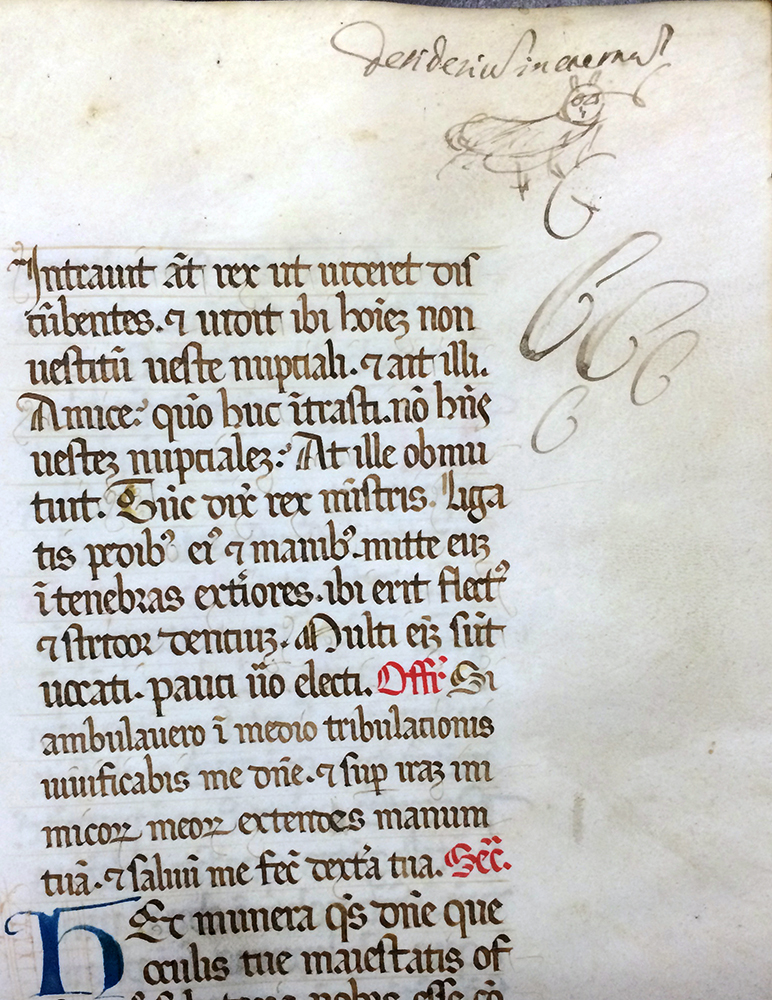 desiderius in
Intrauit āt rex ut uideret dis
cūbentes. ⁊ uidit ibi hoīeꝫ non
uestitū ueste nuptiali. ⁊ ait illi.
Amice: quō huc ītrasti. nō hn̄s
uesteꝫ nuptialeꝫ: At ille obmu
tuit. Tūc dix̄ rex mīstris. Liga
tis pedibꝰ eiꝰ ⁊ manibꝰ. mitte euꝫ
ī tenebras ext̄iores. ibi erit fletꝰ
⁊ stridor dentiuꝫ. Multi eī sūt
uocati. pauci ūo electi. Offr̄ Si
ambulauero ī medio tribulationis
uiuificabis me dn̄e. ⁊ suꝑ iraꝫ ini
micoꝝ meoꝝ extendes manum
tuā. ⁊ saluū me fec̄ dext̄a tua. Sec̄.
HEc munera qs̄ dn̄e que
oculis tue maiestatis of
nobis esse